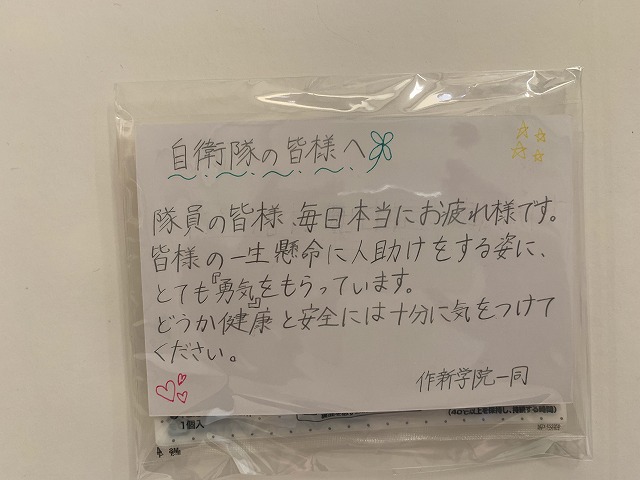 自衛隊の皆様へ
隊員の皆様、毎日本当にお疲れ様です。
皆様の一生懸命に人助けをする姿に、
とても『勇気』をもらっています。
どうか健康と安全には十分に気をつけて
ください。
作新学院一同
(40℃以上を保持し、持続する時間)
1個入